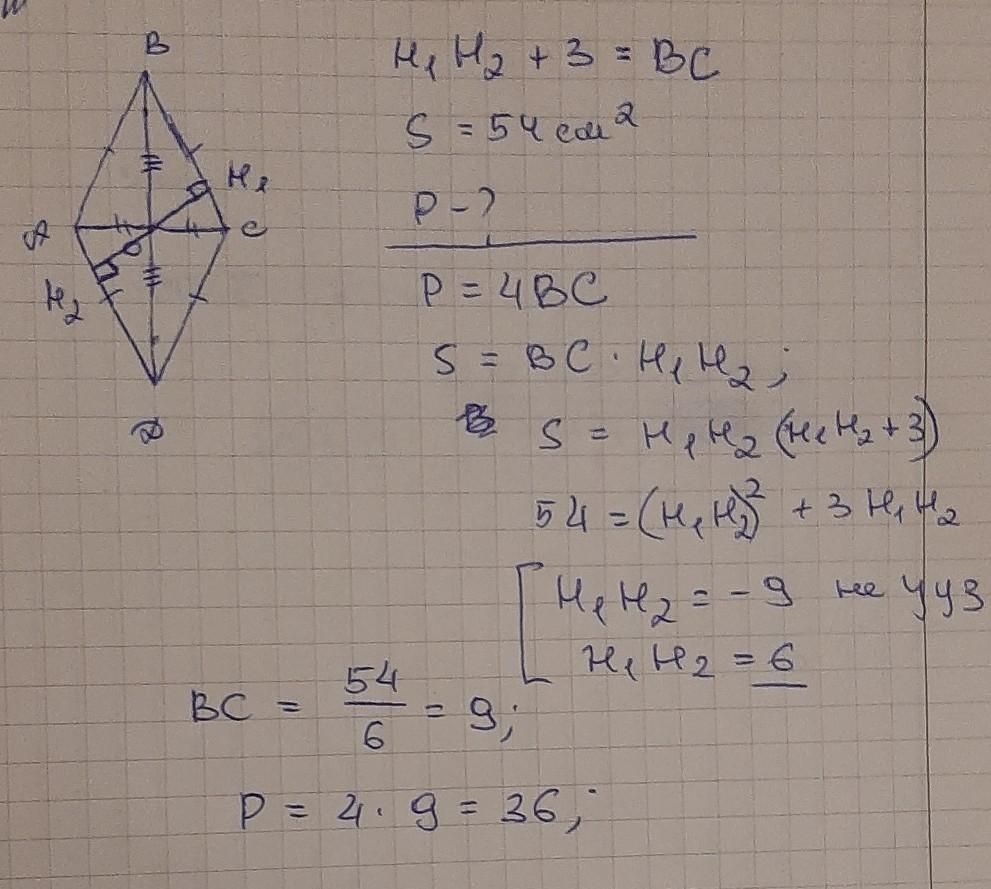 B
H₁
A
C
H₂
D
H₁H₂ + 3 = BC
S = 54 см²
P - ?
P = 4BC
S = BC · H₁H₂;
S = H₁H₂(H₁H₂ + 3)
54 = (H₁H₂)² + 3H₁H₂
H₁H₂ = -9 не ууз
H₁H₂ = 6
BC = 54/6 = 9;
P = 4 · 9 = 36;